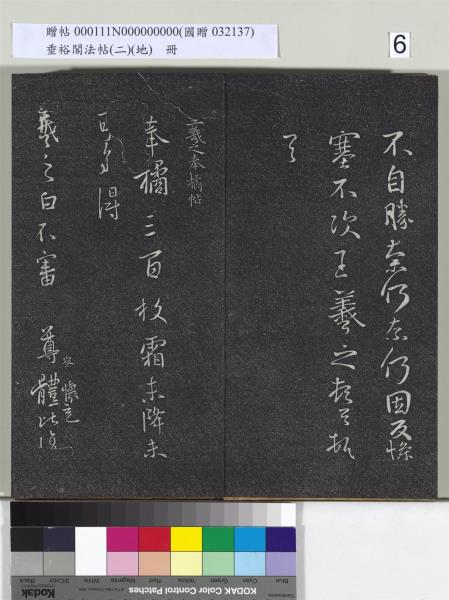 贈帖 000111N000000000(國贈 032137)
垂裕閣法帖(二)(地) 冊
6
不自勝奈何奈何因反慘
塞不次王羲之頓首頓
首
羲之奉橘帖
奉橘三百枚霜未降未
可多得
羲之白不審 尊體比復
KODAK Color Control Patches
Blue Cyan Green Yellow Red Magenta White 3/Color Black